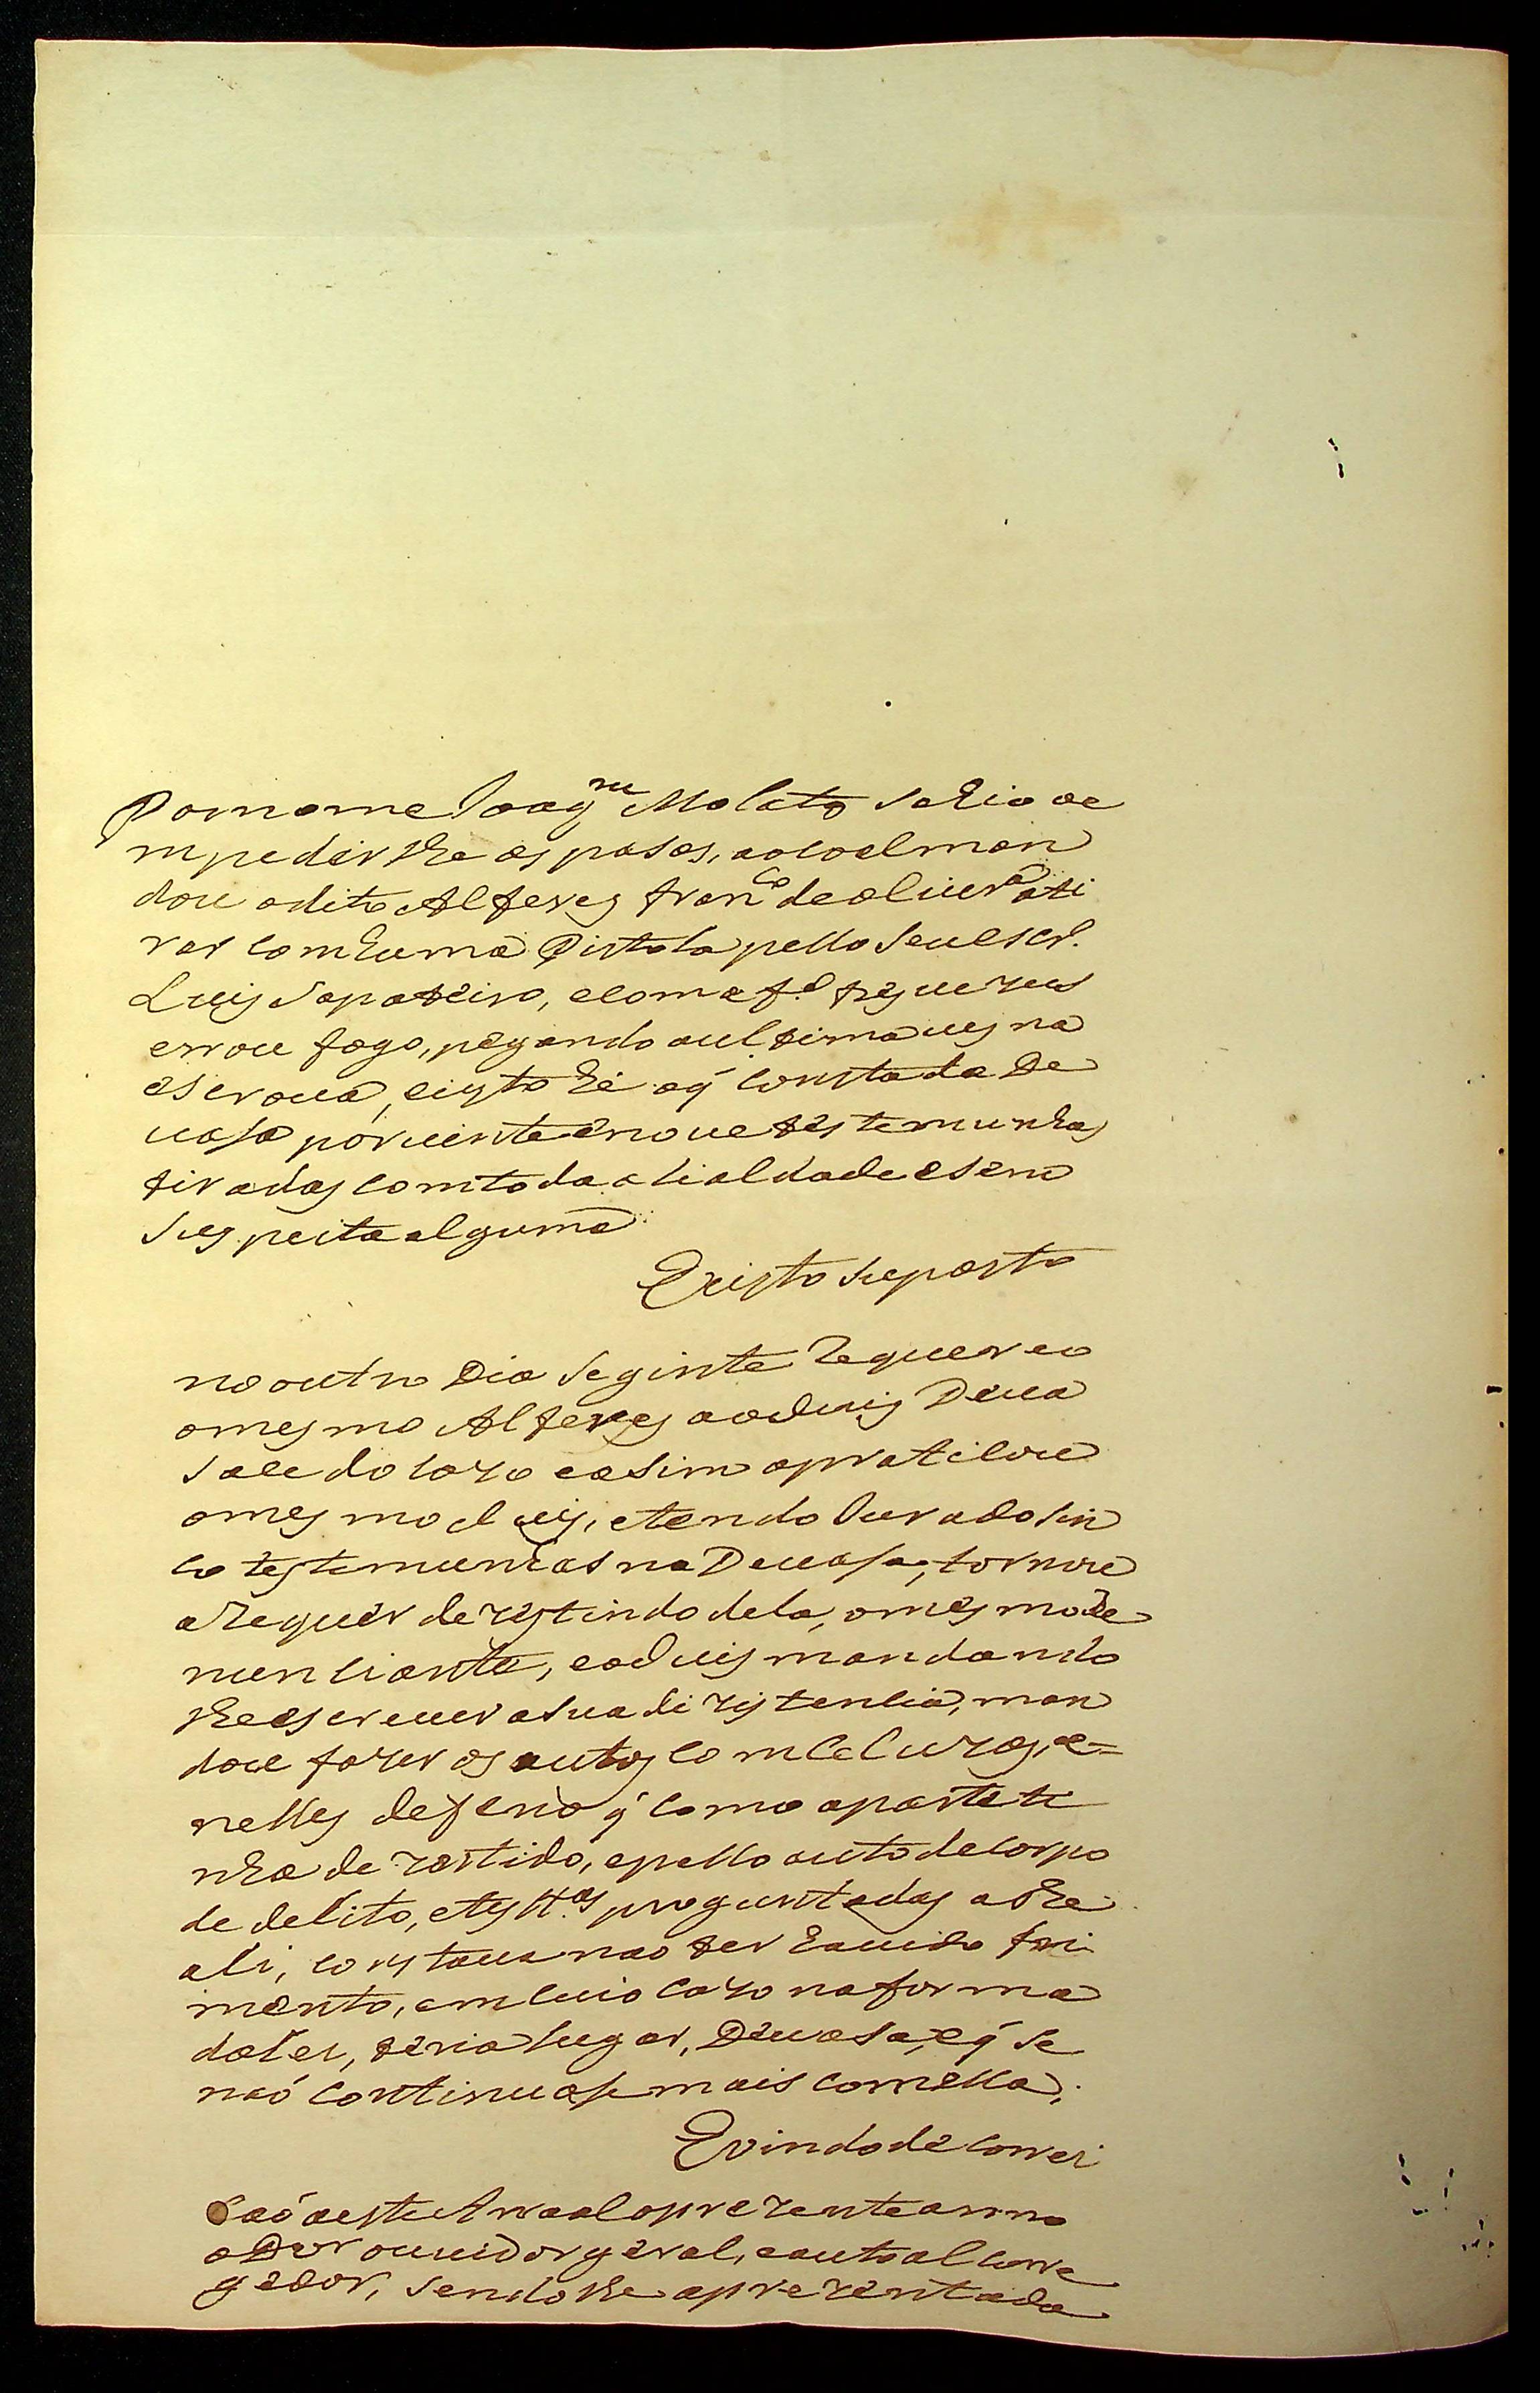 Por nome Joaqm Molato sahio ae
mpedir lhe os pasos, ao coal man
dou o dito Alferes Franco de oliura ati
rar com huma Pistola pello seu escr.
Luis Sapateiro, e com ef.o tres uezes
errou fogo, pegando a ultima ues na
escroua, e isto hé o q̃ consta da De
uasa por uinte e noue testemunhas
tiradas com toda a lialdade e sem
suspeita alguma
E uisto suposto
no outro Dia seginte Requereo
o mesmo Alferes ao Juis Deua
sa do cazo e asim o praticou
o mesmo Juis, e tendo Jurado sin
co testemunhas na Deuasa, tornou
a Requer dezistindo dela, o mesmo de
nunciante, e o Juis mandando
lhe escreuer a sua dizistencia, man
dou fazer os autos comcluzos, e=
nelles deferio q̃ como a parte ti
nha dezistido, e pello auto de corpo
de delito, e testtas preguntadas athe
ali, constaua nao ter hauido fri
mento, em cuio cazo na forma
da Lei, teria lugar, Deuasa, e q̃ se
naó continuase mais com ella.
E vindo de correi
saó a este Arraal o prezente anno
o Dor ouuidor geral, e autoal corre
gedor, sendo lhe aprezentada